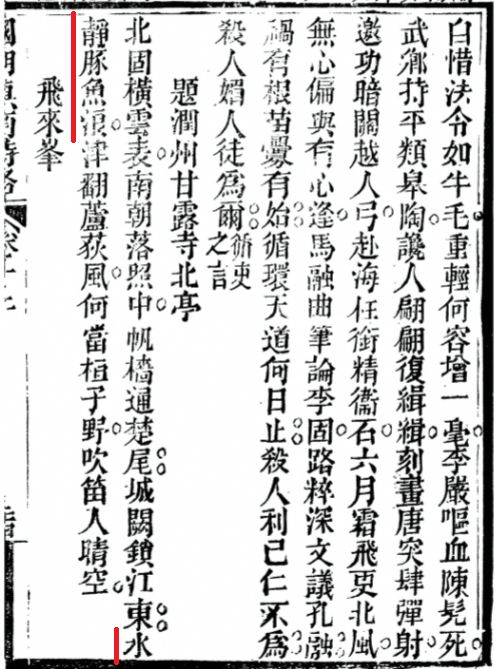 白惜法令如牛毛重輕何容增一毫李嚴嘔血陳髡死
武鄉持平類皋陶讒人翩翩復緝緝刻畫唐突肆彈射
邀功暗鬭越人弓赴海枉銜精衞石六月霜飛更北風
無心偏與有心逢馬融曲筆論李固路粹深文議孔融
禍有根苗釁有始循環天道何日止殺人利己仁不為
殺人媚人徒為爾吏之言
題潤州甘露寺北亭
北固橫雲表南朝落照中帆檣通楚尾城闕鎖江東水
靜豚魚浪津翻蘆荻風何當桓子野吹笛人晴空
飛來峯